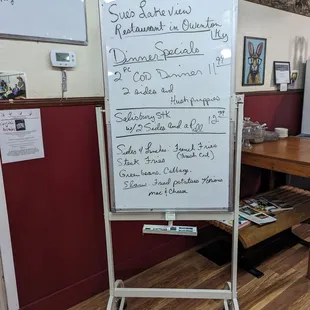 Sue's Lake view
Restaurant in Owenton
Ky
Dinner Specials
2 PC Cod Dinner 11.99
2 sides and
Hushpuppies
Salisbury Stk
w/2 Sides and a roll 12.99
Sides 4 Lucke: French Fries
Steak Fries (French Cut)
Green beans, Cabbage
Slaw Fried potatoes
Mac & Cheese